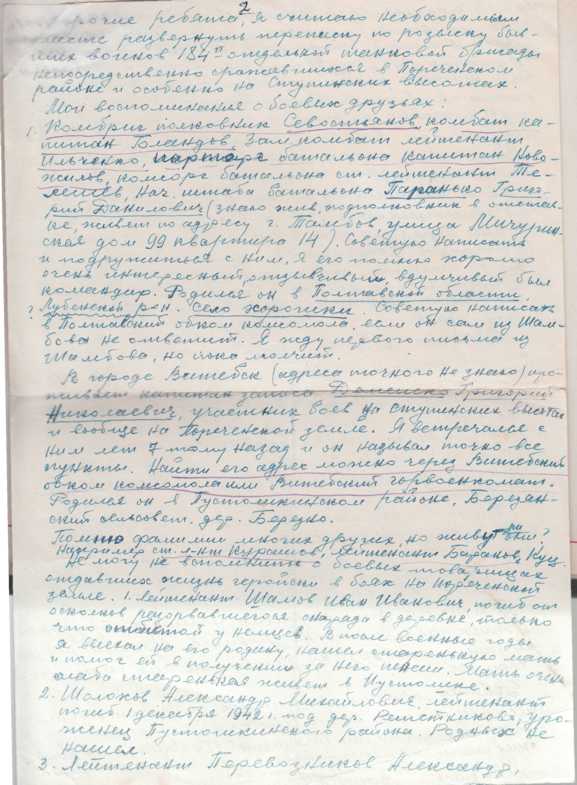 2
Прочие ребята, я считаю необходимым
вместе развернуть переписку по розыску быв-
ших воинов 184й отдельной танковой бригады
непосредственно сражавшихся в Пореченском
районе и особенно на Ступинских высотах.
Мои воспоминания о боевых друзьях:
1. Комбриг полковник Севостьянов, комбат ка-
питан Зам комбат лейтенант
Ильченко, парторг батальона капитан Ново-
жилов, комсорг батальона ст. лейтенант
Нач. штаба батальона Паранько Григо-
рий Данилович (знаю жив, подполковник в отстав-
ке, живет по адресу г. Тамбов, улица Мичурин-
ская дом 99 квартира 14). Советую написать
и подружиться с ним, я его помню хорошо
очень интересный, отзывчивый, вдумчивый был
командир. Родился он в Полтавской области,
? Лубенский р-он. Село Хорошки. Советую написать
в Полтавский обком комсомола, если он сам из Там-
бова не ответит. Я жду первого письма из
Тамбова, но пока молчит.
В городе Витебск (адреса точного не знаю) про-
живает капитан запаса Григорий
Николаевич, участник боев на ступинских высотах
и вообще на Пореченской земле. Я встречался с
ним лет 7 тому назад и он называл точно все
пункты. Найти его адрес можно через Витебский
обком комсомола или Витебский горвоенкомат.
Родился он в Пустошкинском районе,
сельсовет. дер.
Помню фамилии многих других, но живут ли они?
Например ст. л-нт Курашов, лейтенант Баранов, Куц.
Не могу не вспомнить о боевых товарищах
отдавших жизнь геройски в боях на Пореченской
земле. 1. Лейтенант Шамов Иван Иванович, погиб от
осколков разорвавшегося снаряда в деревне, только
что отбитой у немцев. В после военные годы
я выехал на его родину, нашел старенькую мать
и помог ей в получении за него пенсии. Мать очень
слаба старенькая живет в Пустошке.
2. Шолохов Александр Михайлович, лейтенант
погиб 1 декабря 1942 г. под дер. уро-
женец Пустошкинского района. Родных не
нашел.
3. Лейтенант Перевозчиков Александр,